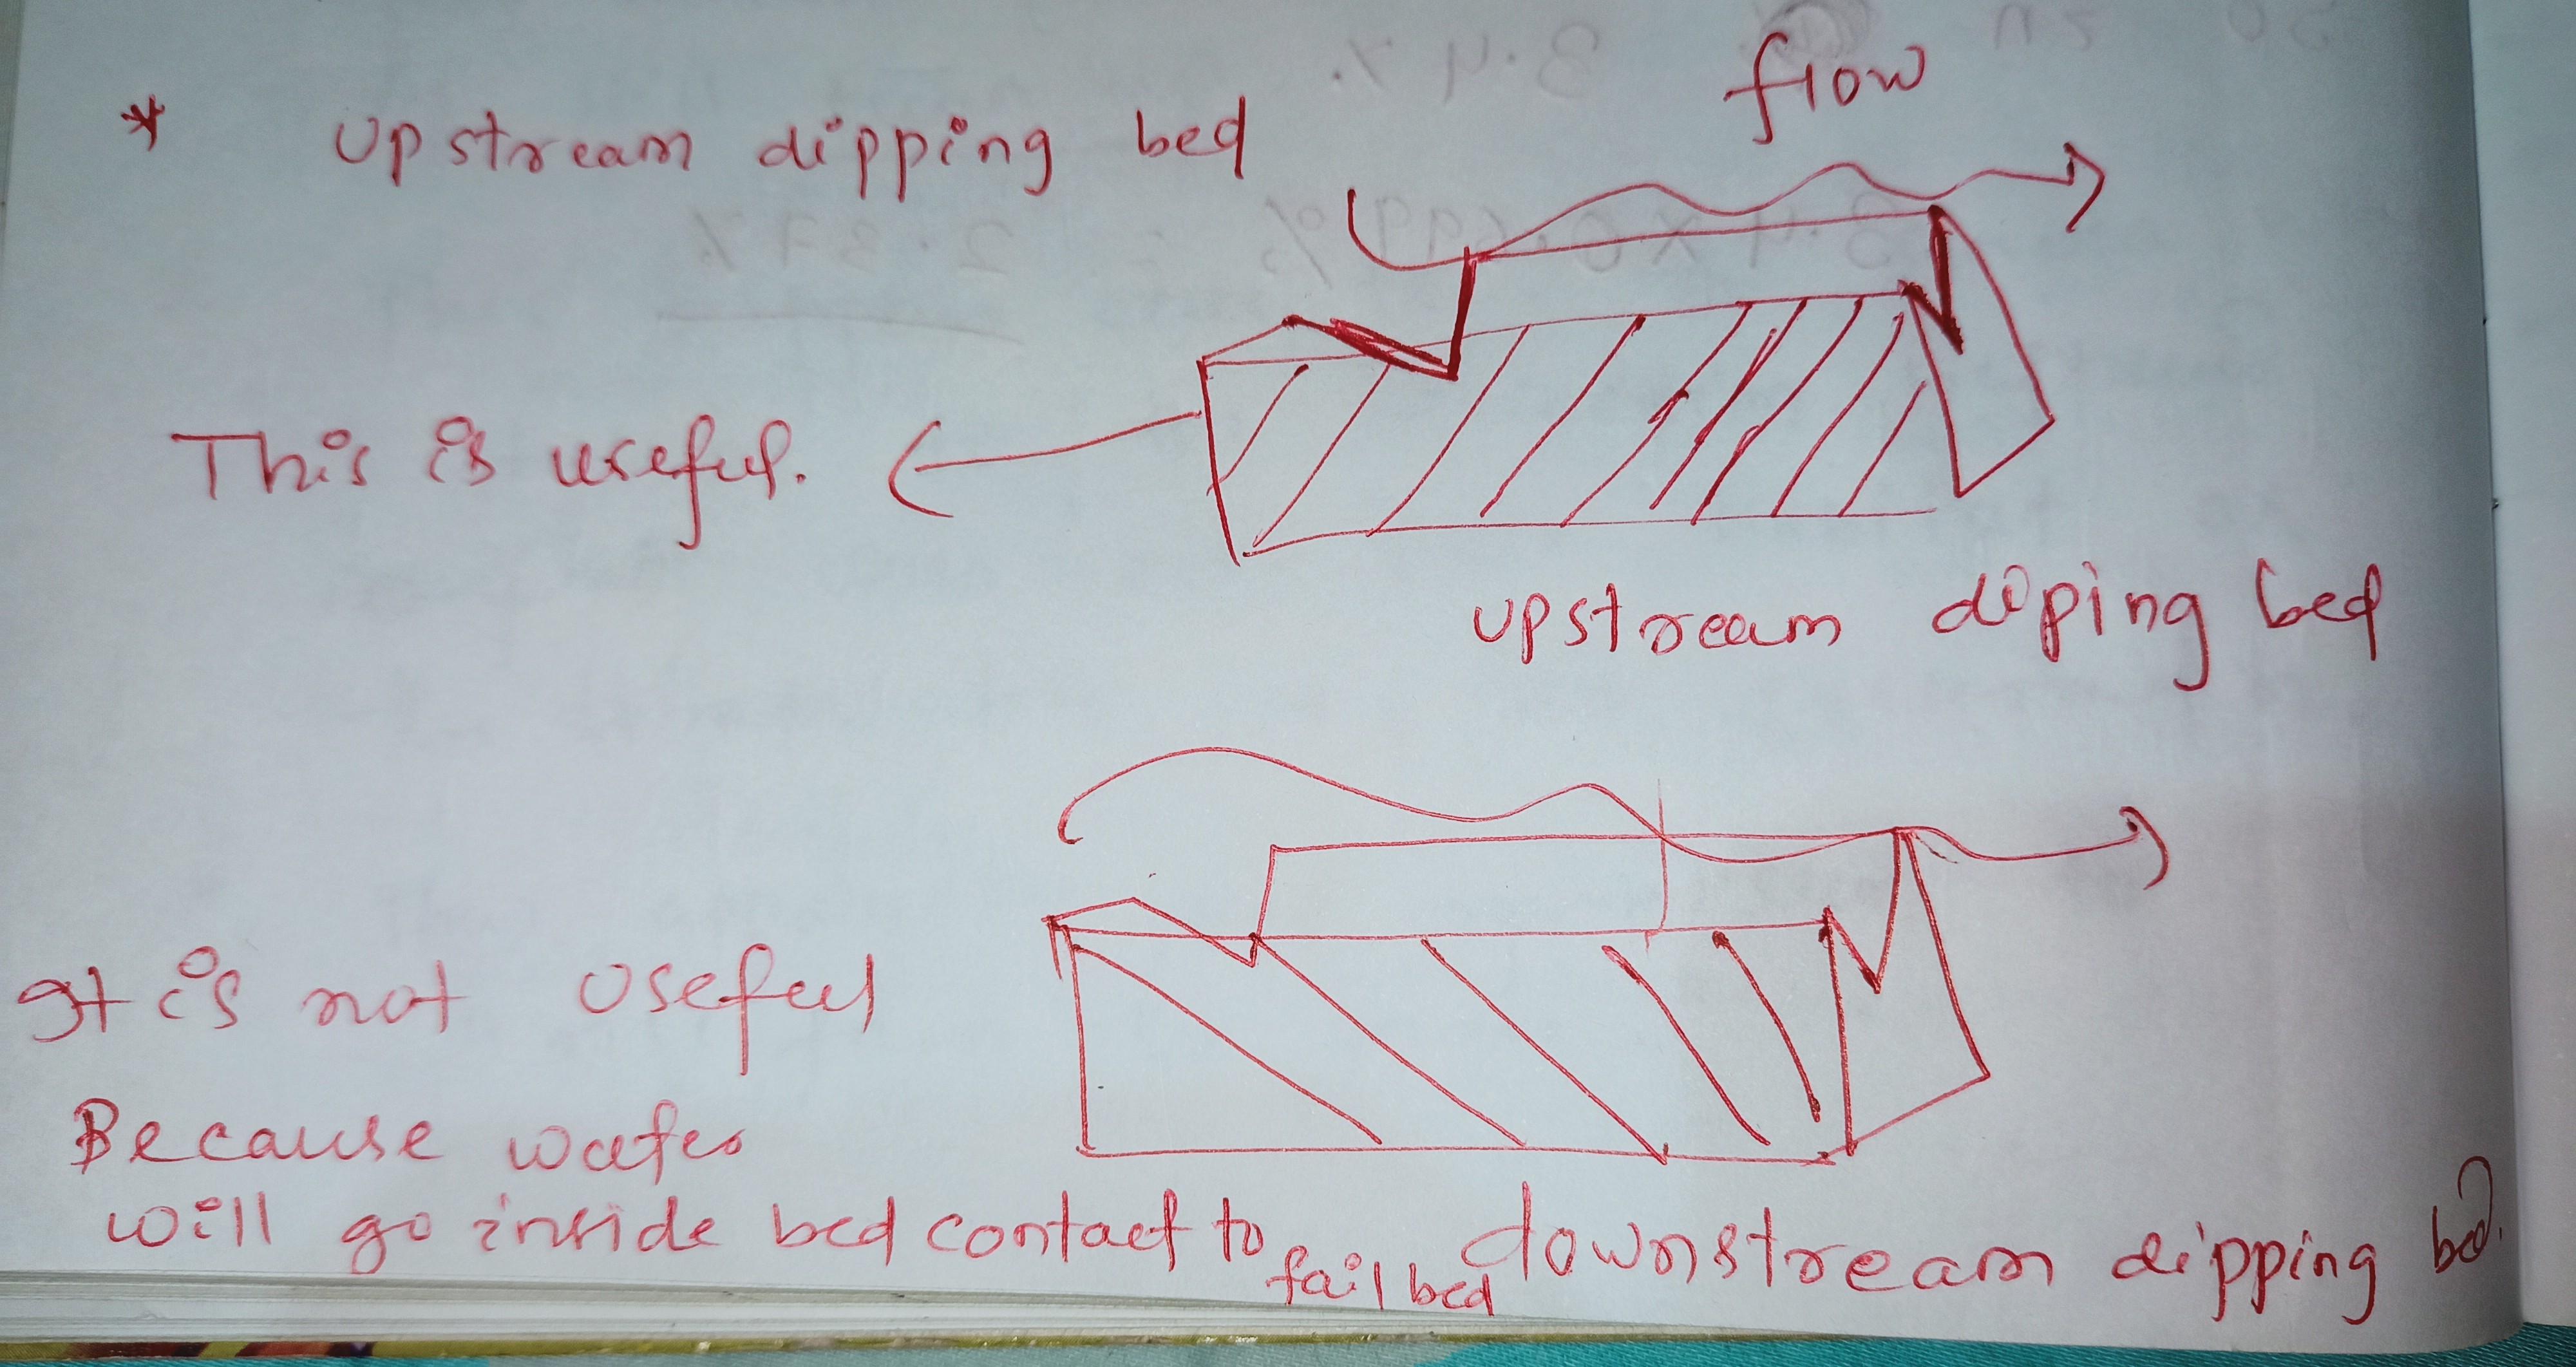 * Upstream dipping bed
flow
This is useful.
upstream diping bed
It is not useful
Because water
will go inside bed contact to
fail bed
downstream dipping bed.